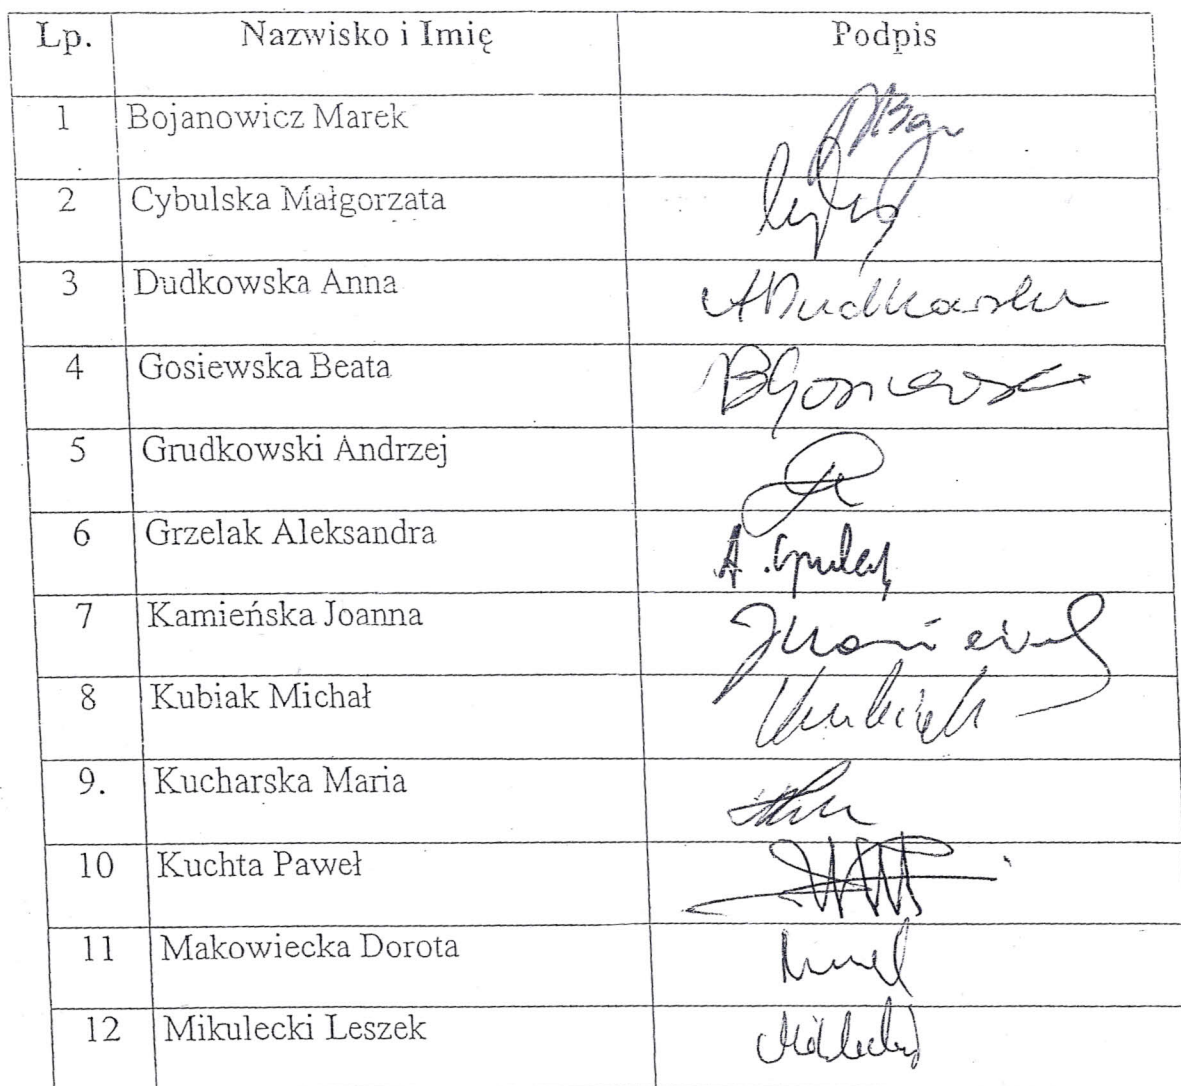 Lp. Nazwisko i Imię Podpis
1 Bojanowicz Marek
2 Cybulska Małgorzata
3 Dudkowska Anna ADudkowska
4 Gosiewska Beata BGosiewska
5 Grudkowski Andrzej
6 Grzelak Aleksandra
7 Kamieńska Joanna
8 Kubiak Michał Kubiak
9. Kucharska Maria
10 Kuchta Paweł
11 Makowiecka Dorota
12 Mikulecki Leszek